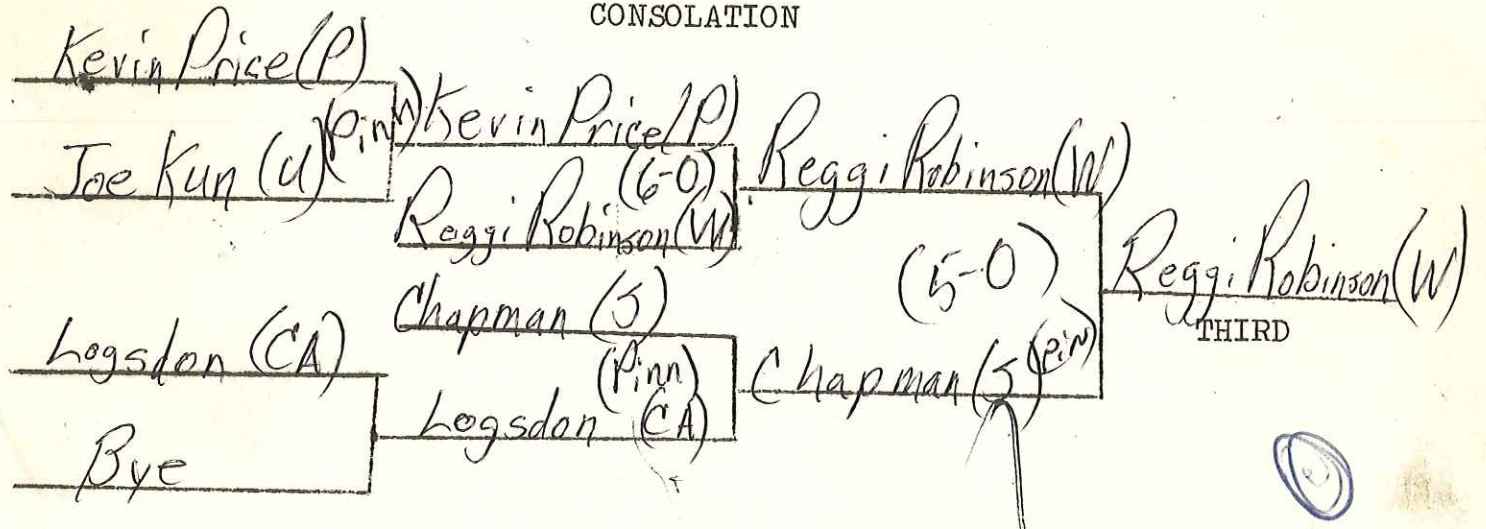 CONSOLATION
Kevin Price (P)
Joe Kun (U) (Pinn)
Logsdon (CA)
Bye
Kevin Price (P)
(6-0)
Reggi Robinson (W)
Chapman (J)
(Pinn)
Logsdon (CA)
Reggi Robinson (W)
(5-0)
Chapman (J) (Pin)
Reggi Robinson (W)
THIRD